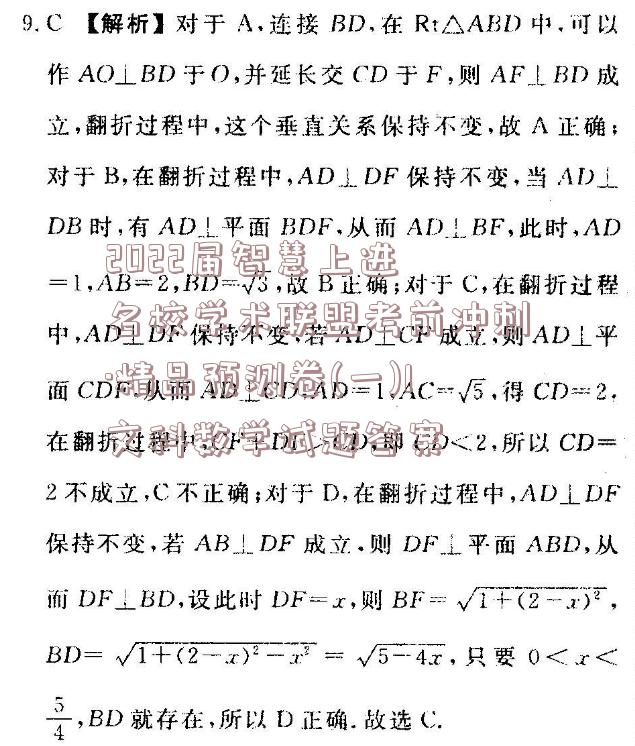 9. C 【解析】对于 A,连接 BD,在 Rt△ABD 中,可以
作 AO⊥BD 于 O,并延长交 CD 于 F,则 AF⊥BD 成
立,翻折过程中,这个垂直关系保持不变,故 A 正确;
对于 B,在翻折过程中,AD⊥DF 保持不变,当 AD⊥
DB 时,有 AD⊥平面 BDF,从而 AD⊥BF,此时,AD
2022届智慧上进
=1,AB=2,BD=√3,故 B 正确;对于 C,在翻折过程
名校学术联盟考前冲刺
中,AD⊥DF 保持不变,若 AD⊥CF 成立,则 AD⊥平
·精品预测卷(一)
面 CDF,从而 AD⊥CD,AD=1,AC=√5,得 CD=2.
文科数学试题答案
在翻折过程中,CF+DF>CD,即 CD<2,所以 CD=
2 不成立,C 不正确;对于 D,在翻折过程中,AD⊥DF
保持不变,若 AB⊥DF 成立.则 DF⊥平面 ABD,从
而 DF⊥BD,设此时 DF=x,则 BF=√1+(2-x)²,
BD=√1+(2-x)²-x²=√5-4x,只要 0<x<
5/4,BD 就存在,所以 D 正确.故选 C.